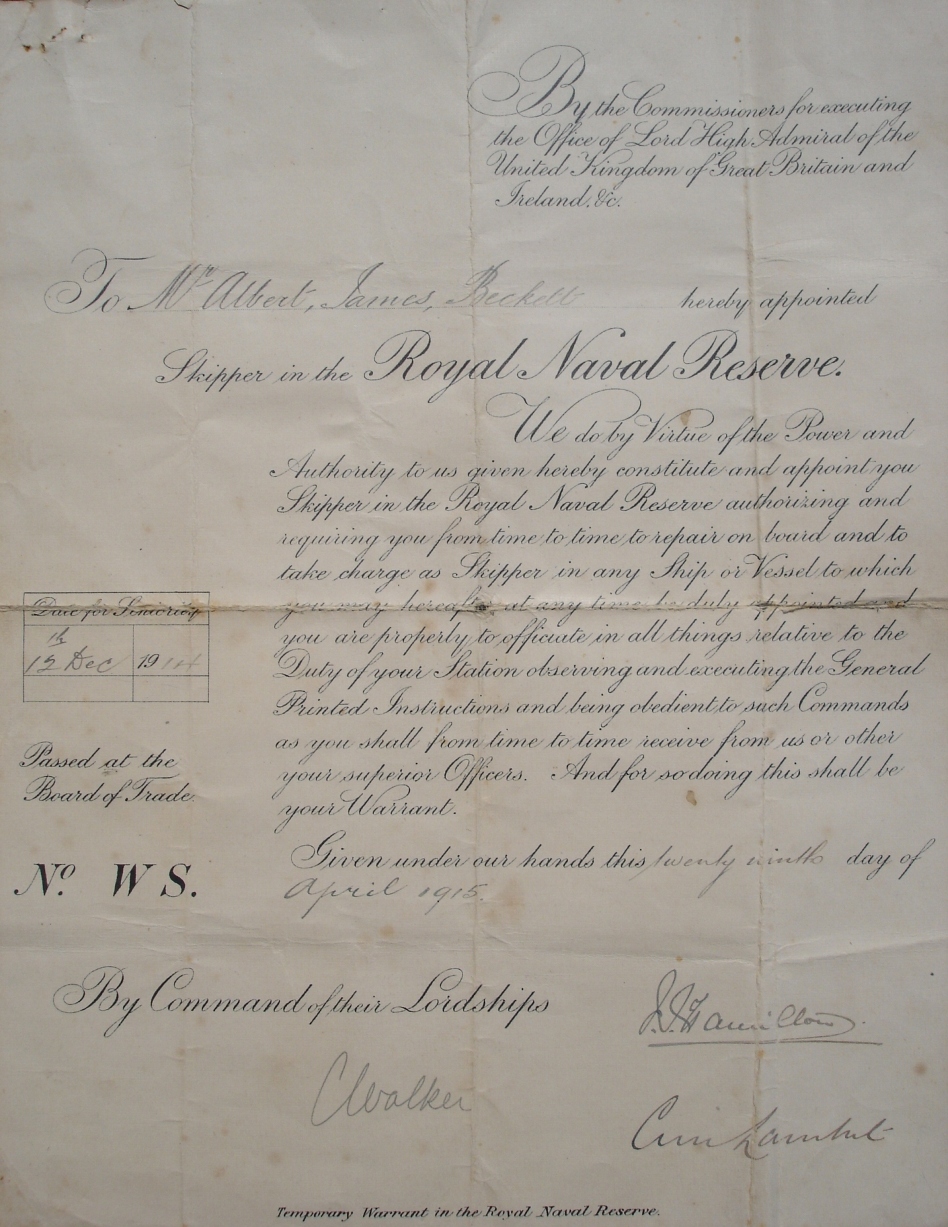 By the Commissioners for executing
the Office of Lord High Admiral of the
United Kingdom of Great Britain and
Ireland. &c.
To Mr Albert, James, Beckett hereby appointed
Skipper in the Royal Naval Reserve.
We do by Virtue of the Power and
Authority to us given hereby constitute and appoint you
Skipper in the Royal Naval Reserve authorizing and
requiring you from time to time to repair on board and to
take charge as Skipper in any Ship or Vessel to which
you may hereafter at any time be duly appointed and
you are properly to officiate in all things relative to the
Duty of your Station observing and executing the General
Printed Instructions and being obedient to such Commands
as you shall from time to time receive from us or other
your superior Officers. And for so doing this shall be
your Warrant.
Date for Seniority
th
12 Dec 1914
Passed at the
Board of Trade.
No. W S.
Given under our hands this twenty ninth day of
April 1915.
By Command of their Lordships
Hamilton
CWalker
Lambert
Temporary Warrant in the Royal Naval Reserve.